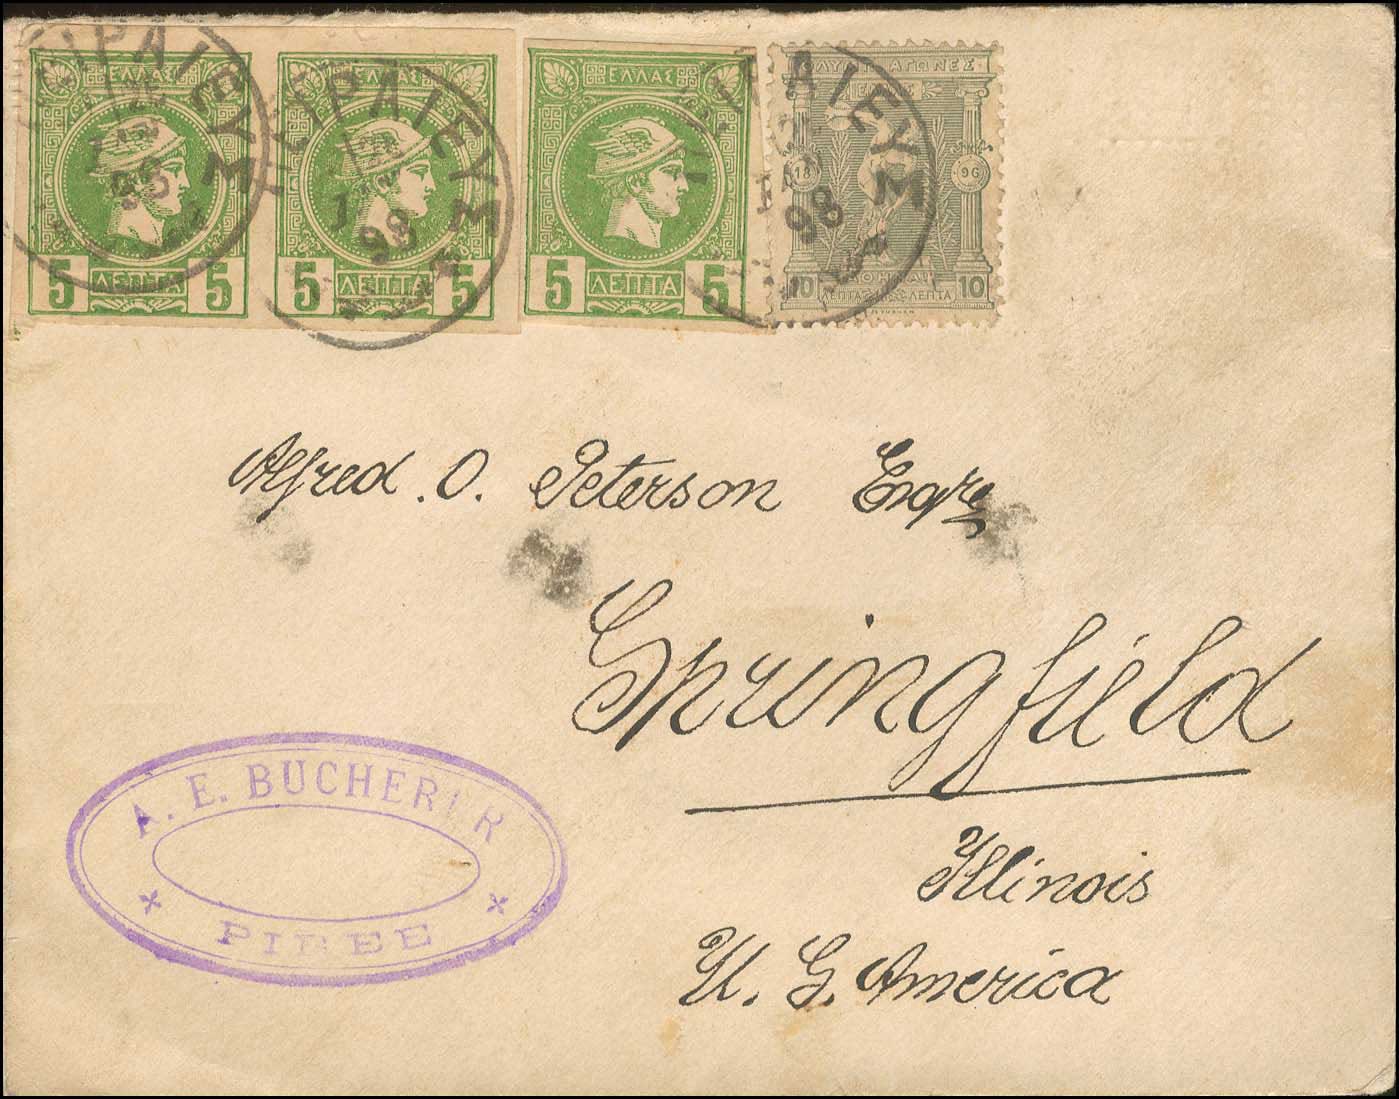 ΕΛΛΑΣ
5 ΛΕΠΤΑ 5
ΕΛΛΑΣ
5 ΛΕΠΤΑ 5
ΕΛΛΑΣ
5 ΛΕΠΤΑ 5
ΑΓΩΝΕΣ
18 96
10 ΛΕΠΤΑ ΛΕΠΤΑ 10
ΠΕΙΡΑΙΕΥΣ
98
ΠΕΙΡΑΙΕΥΣ
98
ΡΑΙΕΥΣ
98
Alfred. O. Peterson Esqre
Springfield
Illinois
U. S. America
A. E. BUCHERER
PIREE